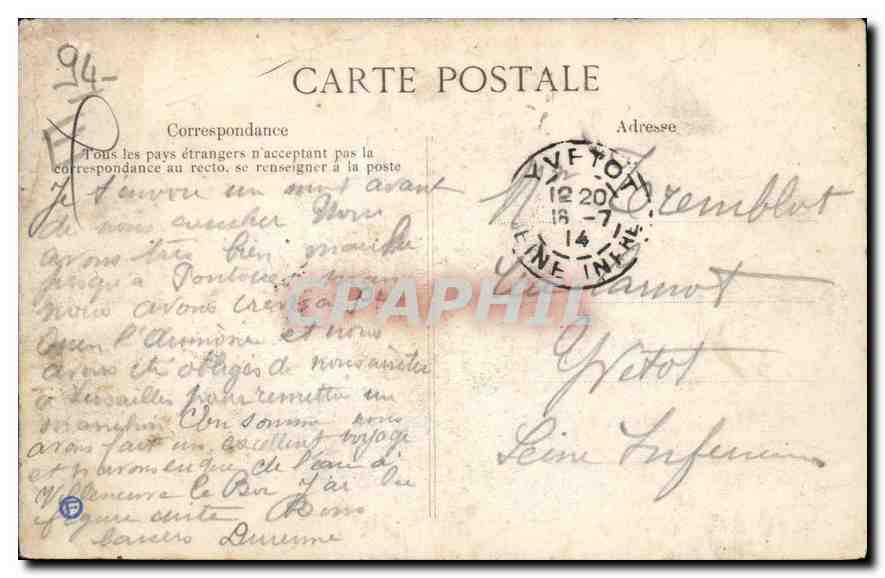 94-
E
CARTE POSTALE
Correspondance
Tous les pays étrangers n'acceptant pas la
correspondance au recto, se renseigner à la poste
Je t'envoie un mot avant
de nous coucher Nous
avons très bien marché
jusqu'à Pontoise
nous avons crevé à St
Ouen l'Aumône et nous
avons été obligés de nous arrêter
à Versailles pour remettre un
En somme nous
avons fait un excellent voyage
et n'avons eu que de l'eau à
Villeneuve le Roi J'ai la
figure cuite Bons
baisers
F
Adresse
YVETOT
12 20
16 -7
14
SEINE INFRE
Tremblot
Yvetot
Seine Inferieure
CPAPHIL